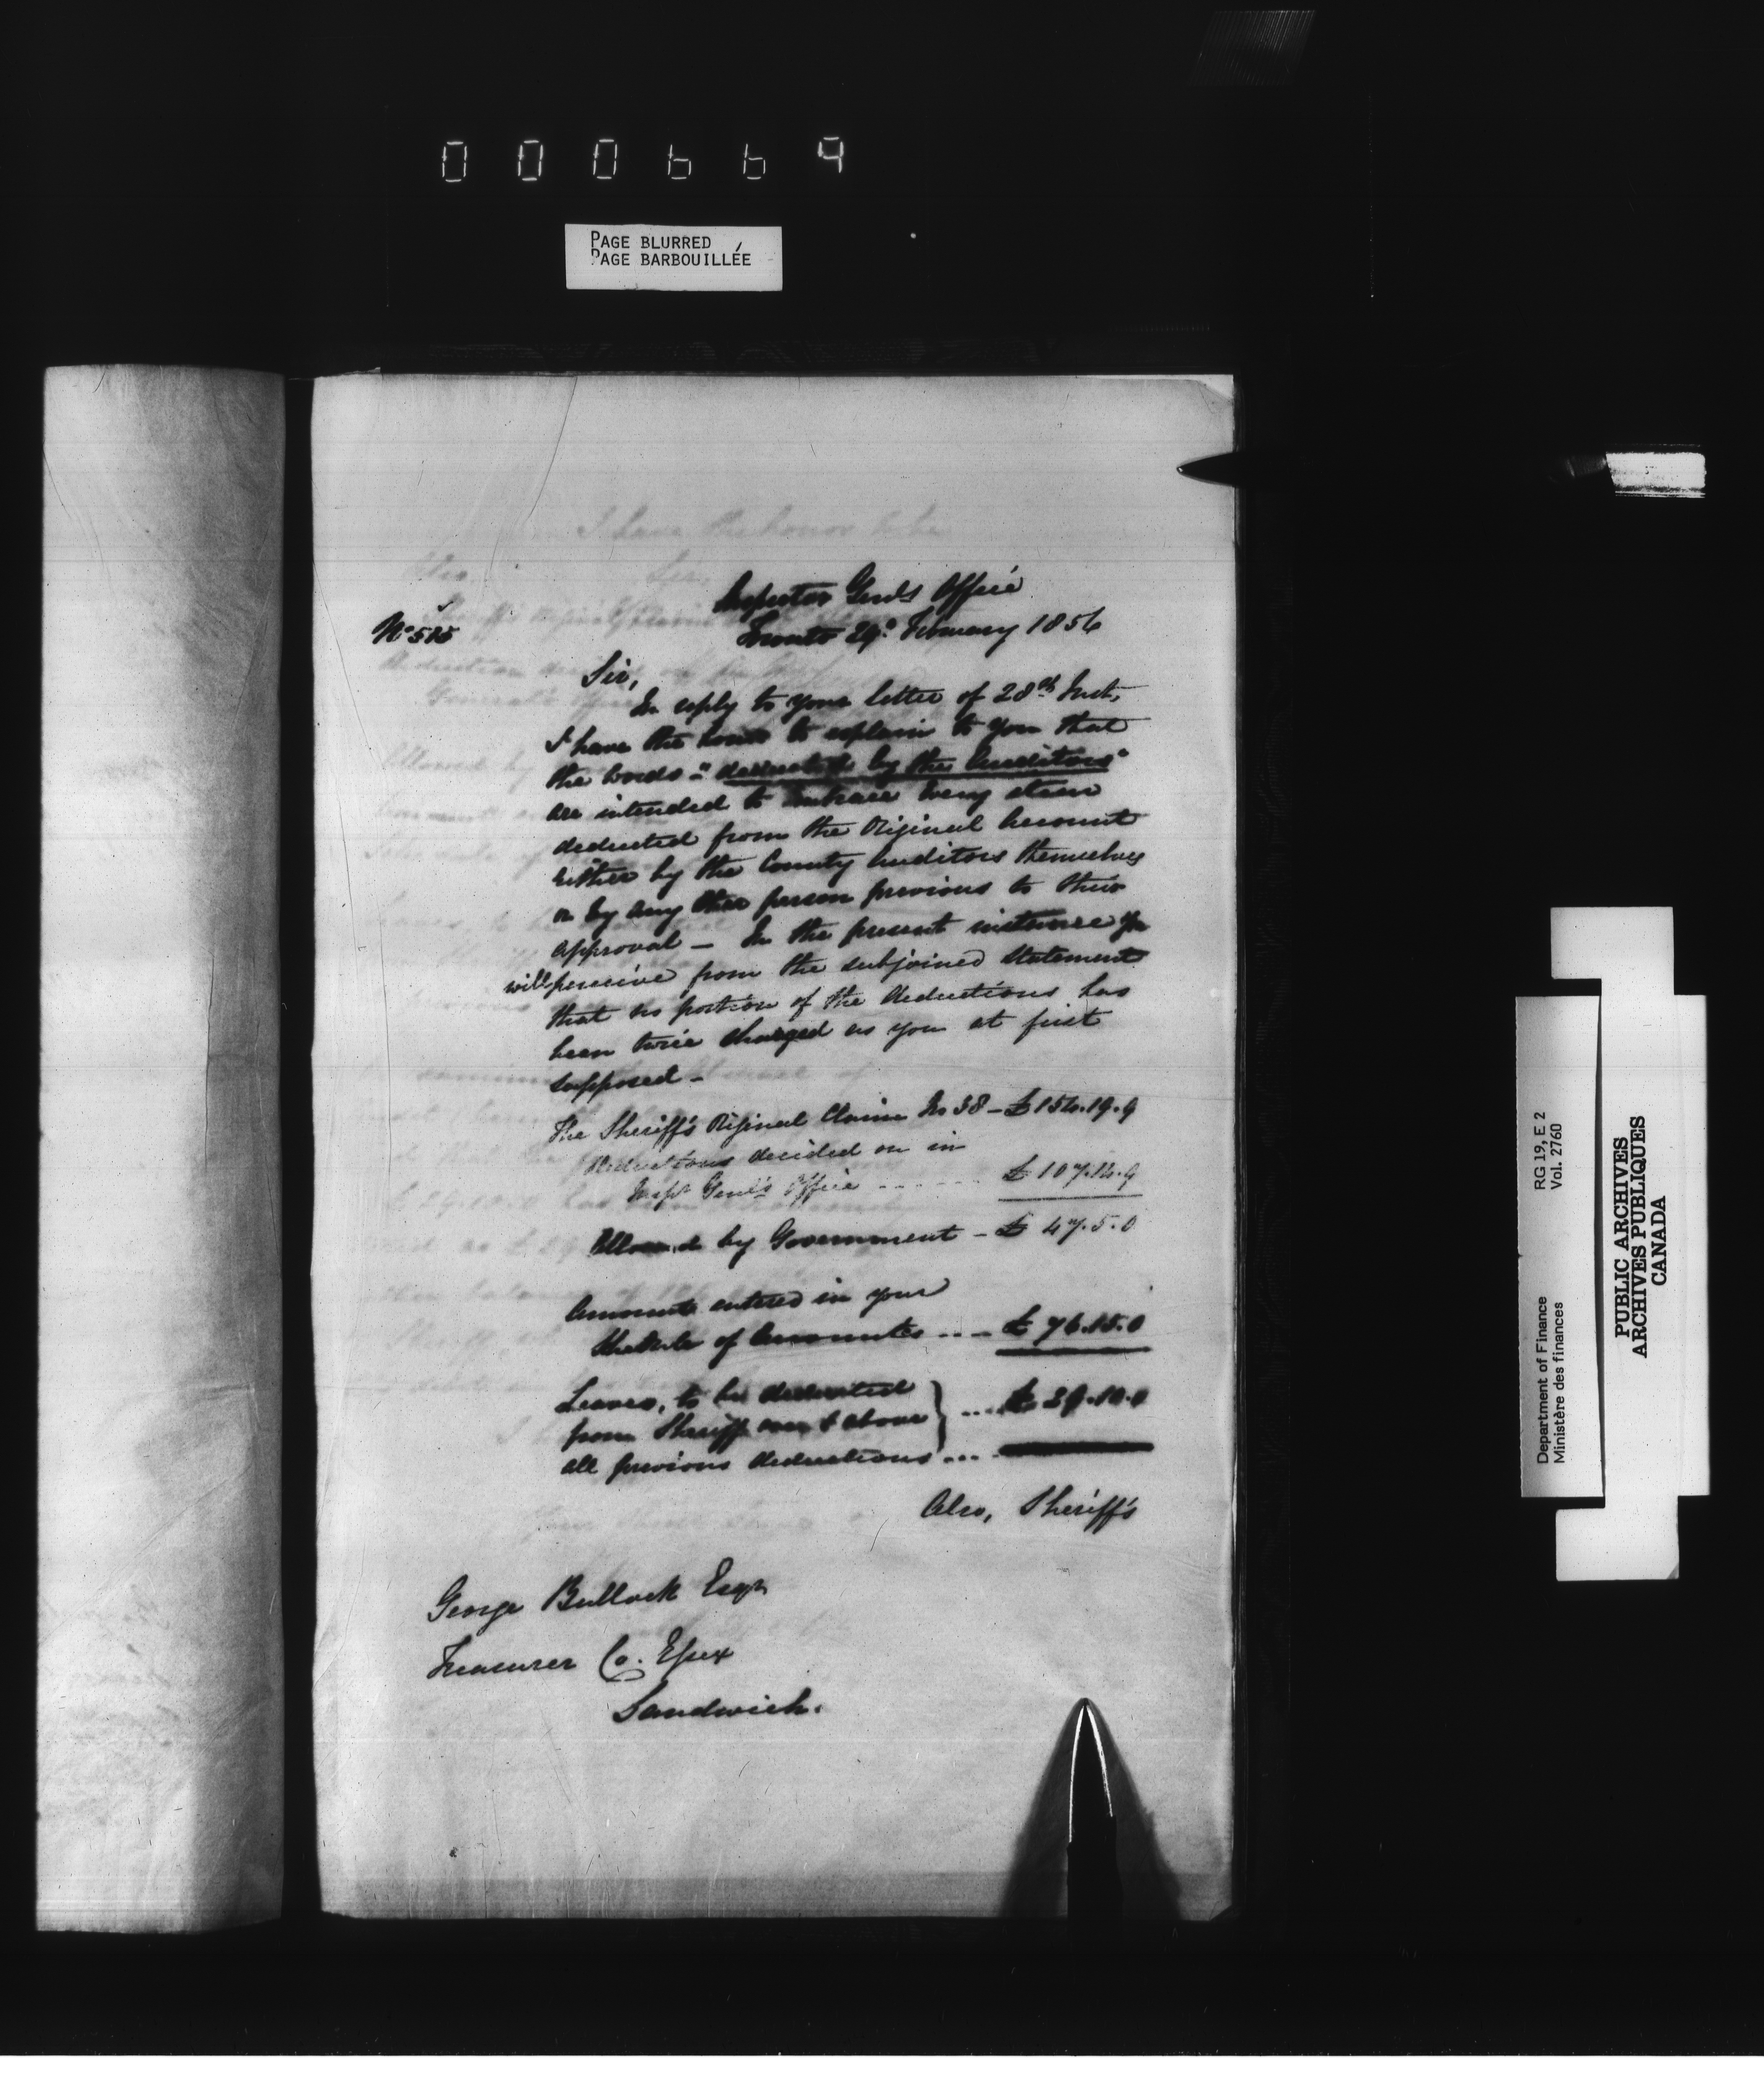 000669
PAGE BLURRED
PAGE BARBOUILLÉE
Inspector Genls Office
Toronto 29th February 1856
No 515
Sir,
In reply to your letter of 28th Inst,
I have the honor to explain to you that
the words - "deducted by the Auditors"
are intended to embrace every item
deducted from the Original Account
either by the County Auditors themselves
or by any other person previous to their
approval - In the present instance you
will perceive from the subjoined statement
that no portion of the deductions has
been twice charged as you at first
supposed -
The Sheriff's Original Claim No 38 - £154.19.9
Deductions decided on in
Inspr Genl's Office ...... £107.14.9
Allowed by Government - £47.5.0
Amount entered in your
Schedule of Accounts .... £76.15.0
Leaves, to be deducted
from Sheriff over & above } ... £29.10.0
all previous deductions ...
Also, Sheriff's
George Bullock Esqr
Treasurer Co. Essex
Sandwich.
Department of Finance RG 19, E 2
Ministère des finances Vol. 2760
PUBLIC ARCHIVES
ARCHIVES PUBLIQUES
CANADA